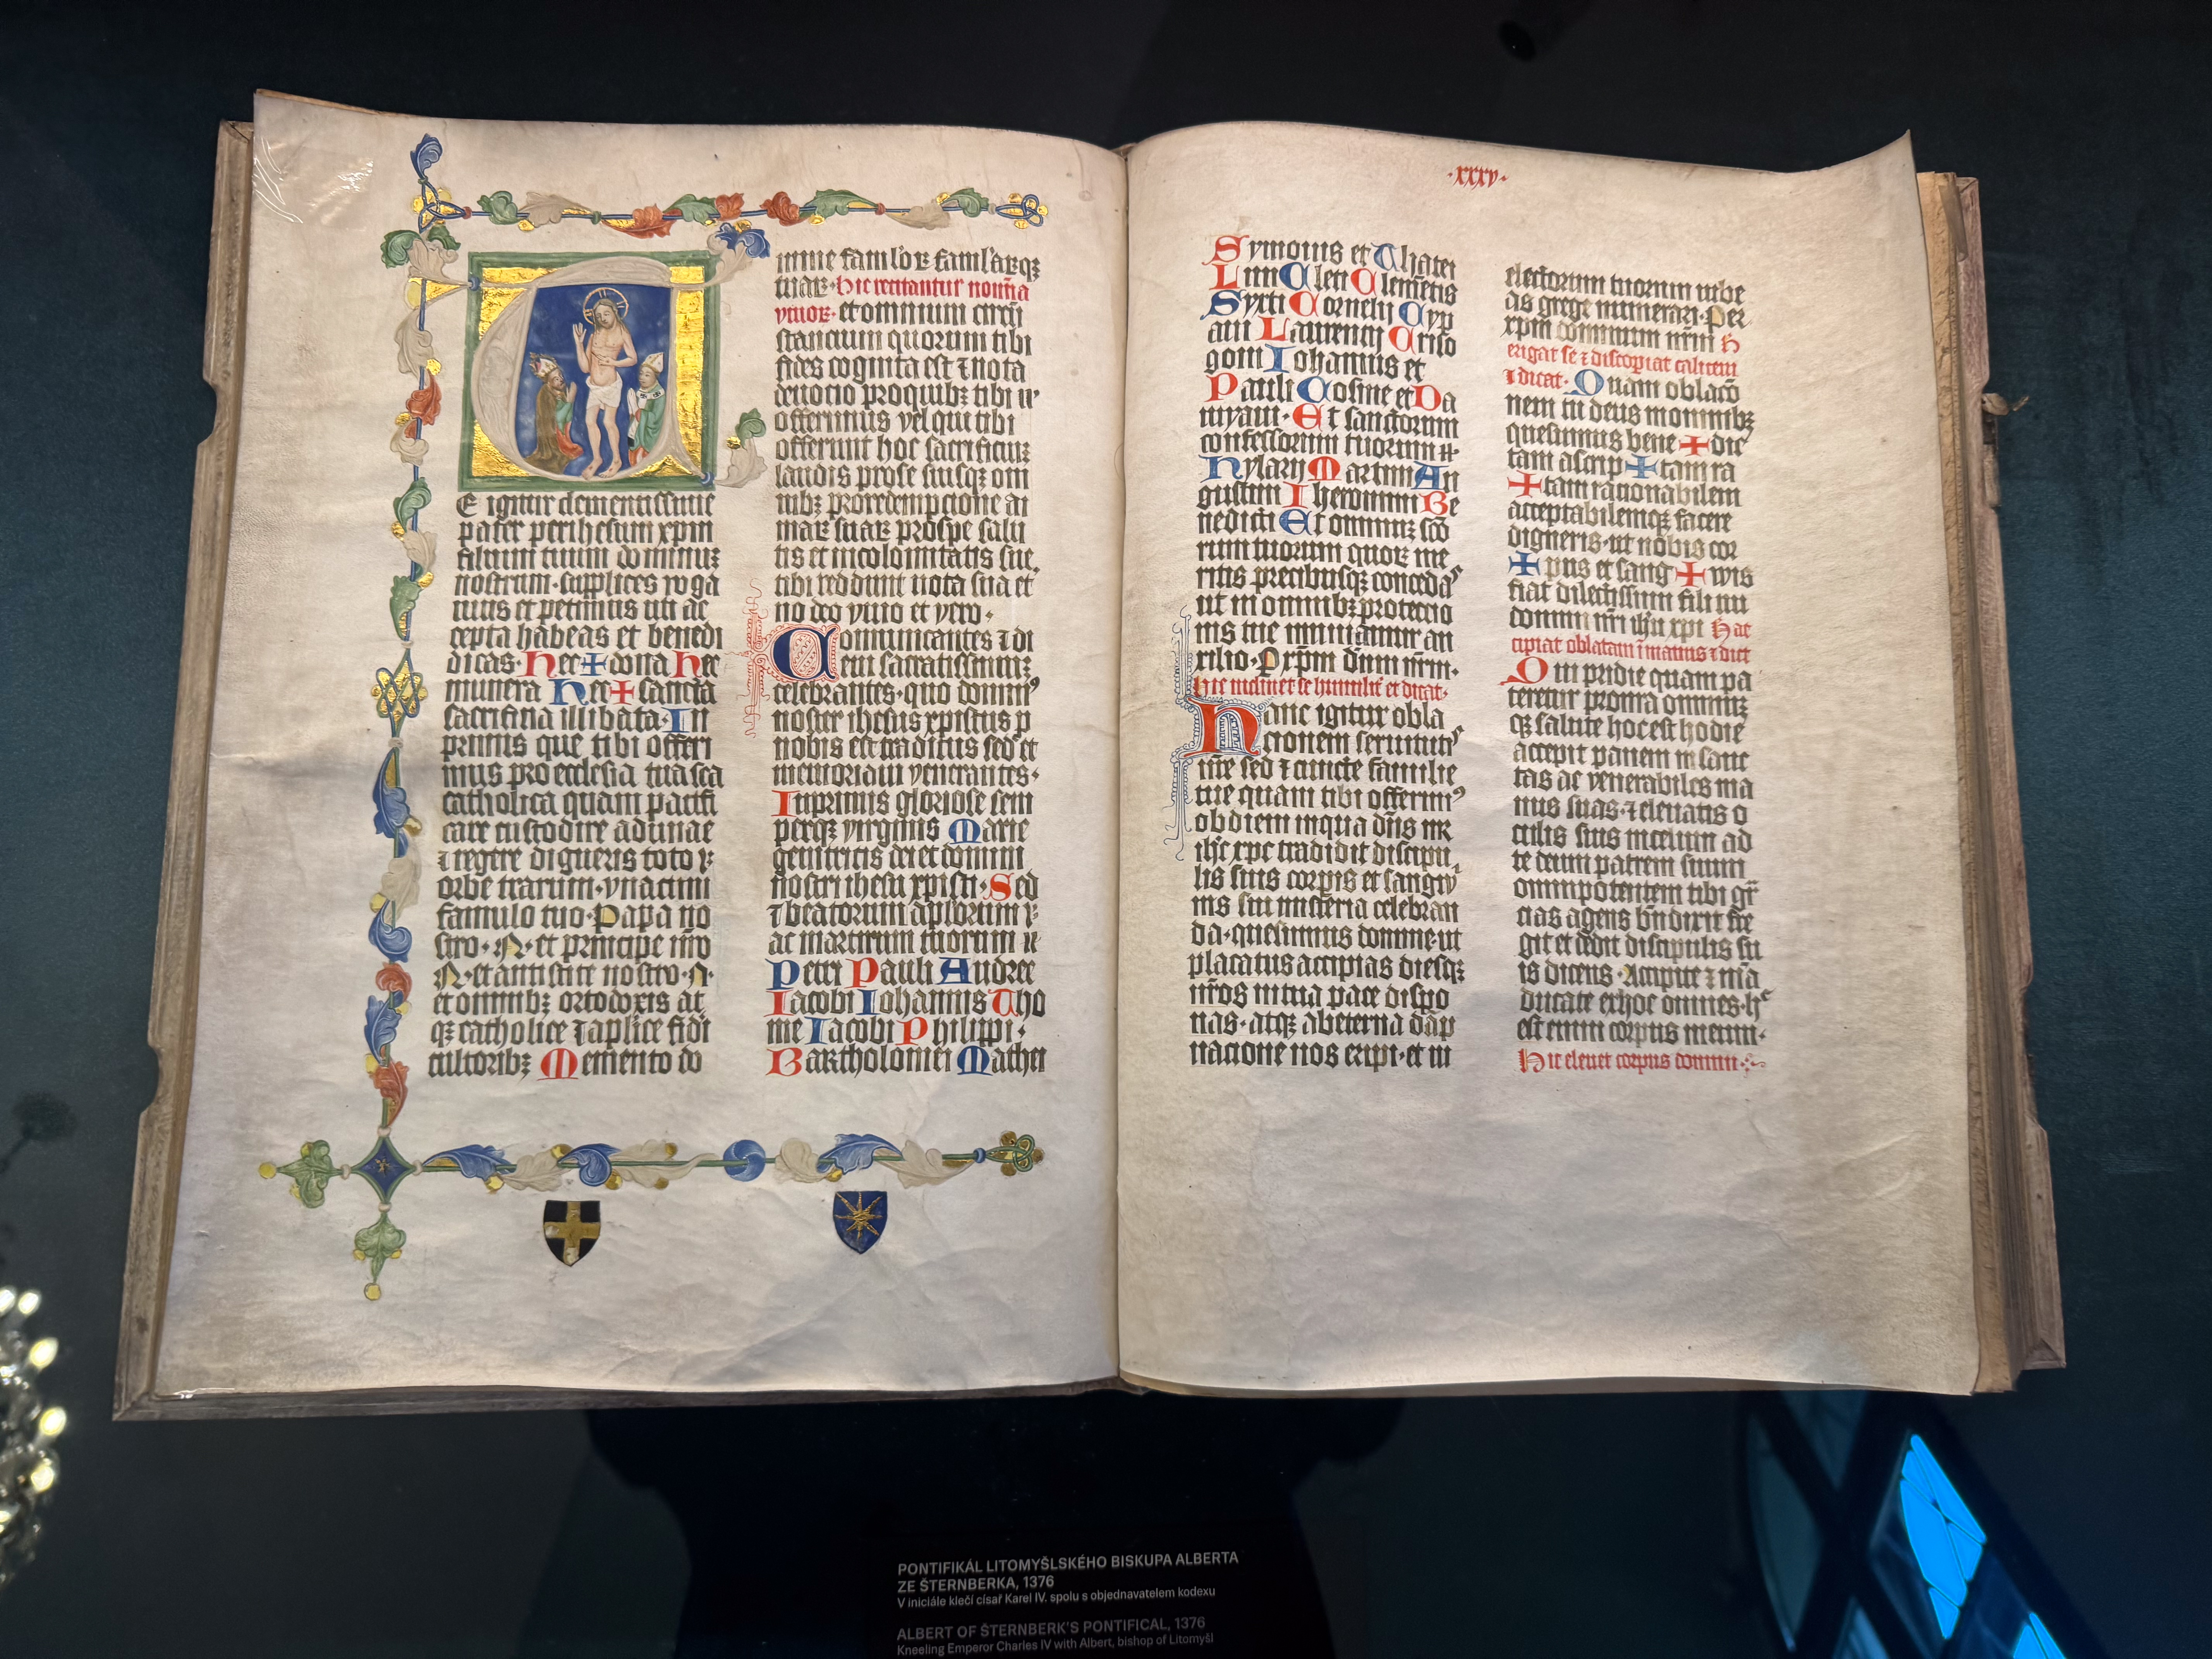 E igitur clementissime
pater per ihesum xpm
filium tuum dominuʒ
nostrum · supplices roga
mus et petimus uti ac
cepta habeas et benedi
dicas · Hec + dona Hec
munera Hec + sancta
sacrificia illibata · In
primis que tibi offeri
mus pro ecclesia tua sca
catholica quam pacifi
care custodire adunae
⁊ regere digneris toto ꝛ·
orbe trarum · vna cum
famulo tuo · Papa no
stro · N · et principe nro
N · et antistite nostro · N ·
et omnibʒ ortodoxis at
qʒ catholice ⁊ aplice fidi
cultoribʒ Memento do
mine famlorꝝ famlarqʒ
tuaꝝ · hic recitantur nomia
viuoꝝ · et omnium circū
stancium quorum tibi
fides cognita est ⁊ nota
deuocio pro quibʒ tibi
offerimus vel qui tibi
offerunt hoc sacrificiuʒ
laudis pro se suisqʒ om
nibʒ pro redempcione ai
maꝝ suaꝝ pro spe salu
tis et incolomitatis sue.
tibi reddunt uota sua et
no deo viuo et vero ·
Comunicantes ⁊ di
em sacratissimuʒ
celebrantes · quo dominꝰ
noster ihesus xpistus p
nobis est traditus sed et
memoriam venerantes ·
Inprimis gloriose sem
perqʒ virginis Marie
genitricis dei et domini
nostri ihesu xpisti · Sed
⁊ beatorum aplorum ꝛ·
ac martirum tuorum
Petri Pauli Andree
Iacobi Iohannis Tho
me Iacobi Philippi ·
Bartholomei Mathei
· xxxv ·
Symonis et Thatei
Lini Cleti Clemetis
Syxti Cornelij Cyp
ani Laurencij Criso
goni Iohannis et
Pauli Cosme et Da
myani · Et sanctorum
confessorum tuorum
Hylarij Martini Au
gustini Iheronimi Be
nedicti Et omniuʒ sco
rum tuorum quoꝝ me
ritis precibusqʒ concedaˢ
ut in omnibʒ protectio
nis tue muniamur au
xilio · P xpm dnm nrm ·
hic inclinet se humilit et dicat ·
Hanc igitur obla
cionem seruitutiˢ
nre sed ⁊ cuncte familie
tue quam tibi offerimꝰ
ob diem in qua dns nr
ihc xpc tradidit discipu
lis suis corpis et sangwi
nis sui misteria celebran
da · quesumus domine ut
placatus accipias diesqʒ
nros in tua pace dispo
nas · atqʒ ab eterna dāp
nacione nos eripi · et in
electorum tuorum iube
as grege numerari · Per
xpm dominum nrm H
erigat se ⁊ discopiat calicem
⁊ dicat · Quam oblaco
nem tu deus in omnibʒ
quesumus bene + dic
tam ascrip + tam ra
+ tam racionabilem
acceptabilemqʒ facere
digneris · ut nobis cor
+ pus et sang + wis
fiat dilectissimi fili tui
domini nri ihu xpi Hac
cipiat oblatam ī manus ⁊ dict
Qui pridie quam pa
teretur pro nra omniuʒ
qʒ salute hoc est hodie
accepit panem in sanc
tas ac venerabiles ma
nus suas · ⁊ eleuatis o
culis suis in celum ad
te deum patrem suum
omnipotentem tibi gr̄
cias agens bndixit fre
git et dedit discipulis su
is dicens · Accipite ⁊ ma
ducate ex hoc omnes · hᶜ
est enim corpus meum ·
Hic eleuet corpus domini
PONTIFIKÁL LITOMYŠLSKÉHO BISKUPA ALBERTA
ZE ŠTERNBERKA, 1376
V iniciále klečí císař Karel IV. spolu s objednavatelem kodexu
ALBERT OF ŠTERNBERK'S PONTIFICAL, 1376
Kneeling Emperor Charles IV with Albert, bishop of Litomyšl